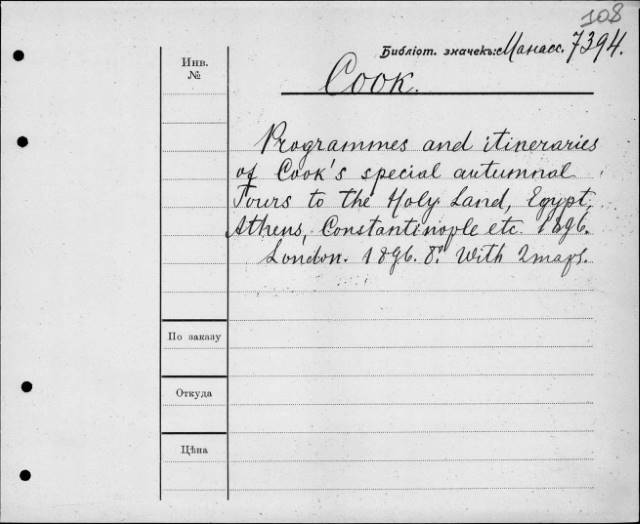 108
Библіот. значекъ: Манасс. 7394.
Инв.
№
Cook.
Programmes and itineraries
of Cook's special autumnal
Tours to the Holy Land, Egypt,
Athens, Constantinople etc. 1896.
London. 1896. 8°. With 2 maps.
По заказу
Откуда
Цѣна